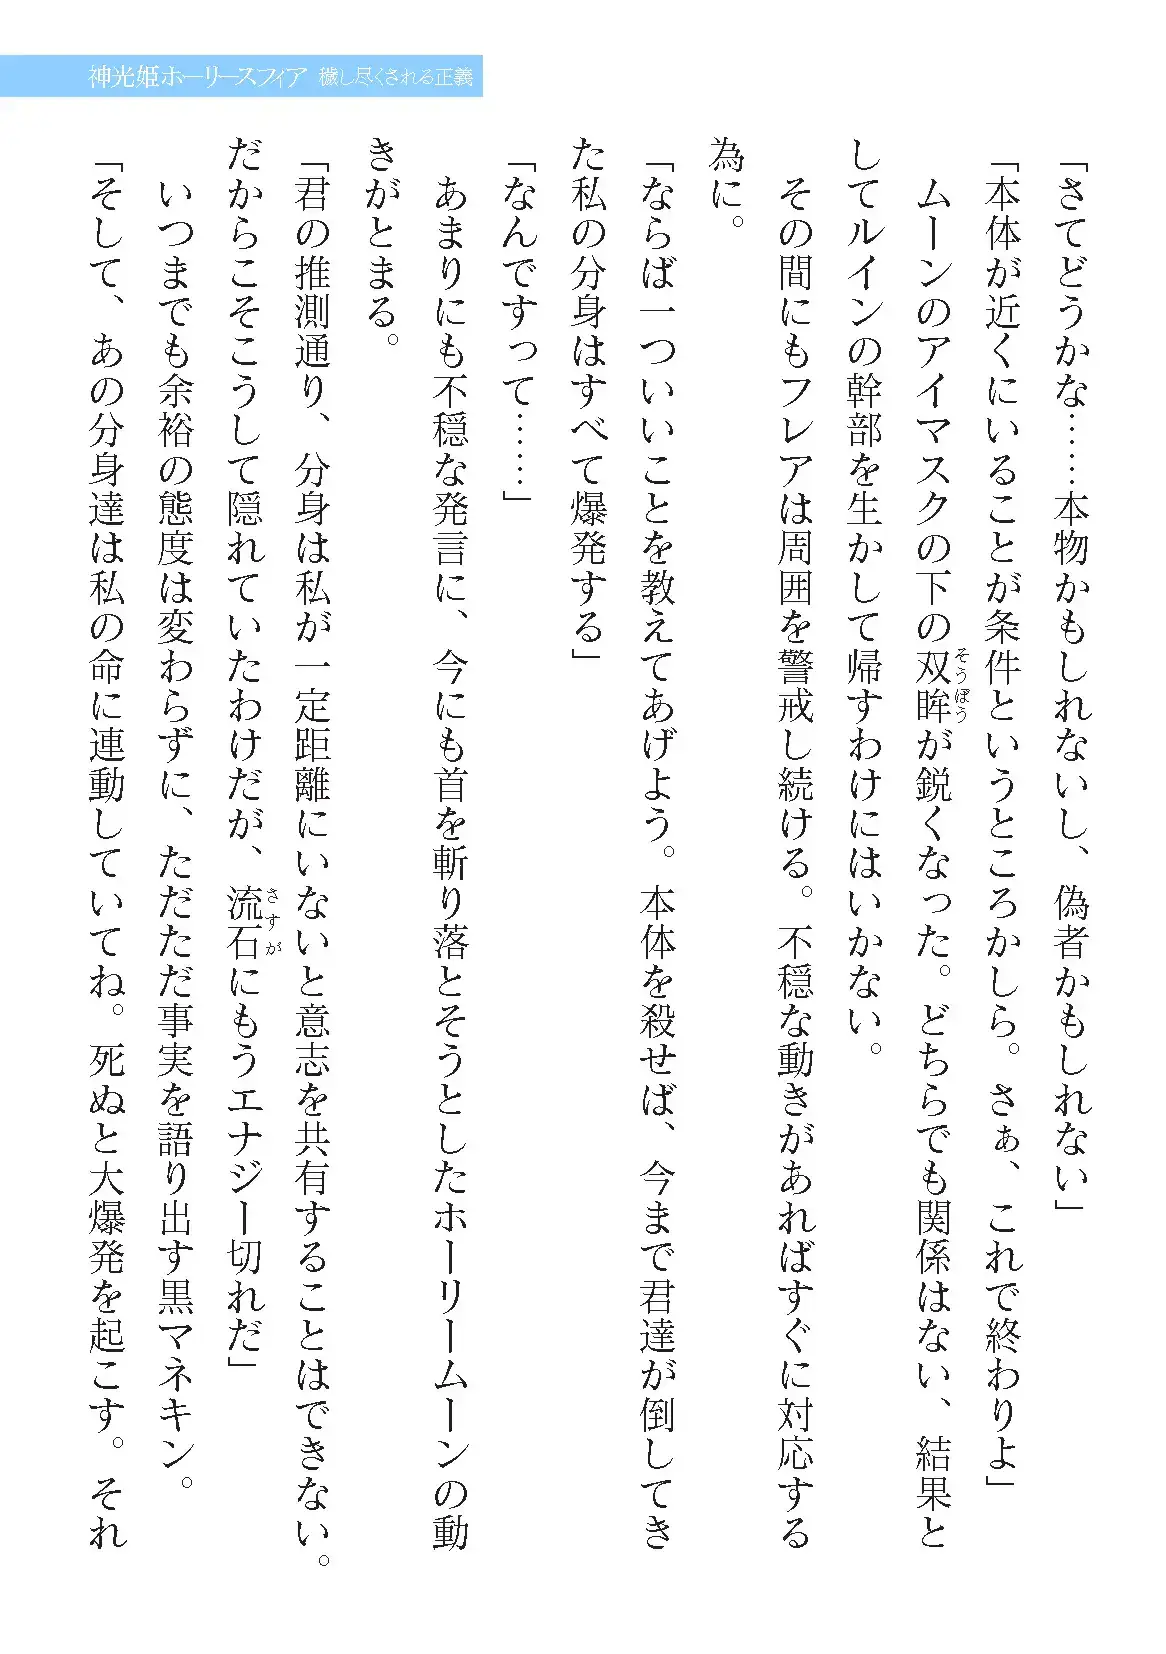 神光姫ホーリースフィア 穢し尽くされる正義
「さてどうかな……本物かもしれないし、偽者かもしれない」
「本体が近くにいることが条件というところかしら。さぁ、これで終わりよ」
ムーンのアイマスクの下の双眸が鋭くなった。どちらでも関係はない、結果と
そうぼう
してルインの幹部を生かして帰すわけにはいかない。
その間にもフレアは周囲を警戒し続ける。不穏な動きがあればすぐに対応する
為に。
「ならば一ついいことを教えてあげよう。本体を殺せば、今まで君達が倒してき
た私の分身はすべて爆発する」
「なんですって……」
あまりにも不穏な発言に、今にも首を斬り落とそうとしたホーリームーンの動
きがとまる。
「君の推測通り、分身は私が一定距離にいないと意志を共有することはできない。
だからこそこうして隠れていたわけだが、流石にもうエナジー切れだ」
さすが
いつまでも余裕の態度は変わらずに、ただただ事実を語り出す黒マネキン。
「そして、あの分身達は私の命に連動していてね。死ぬと大爆発を起こす。それ